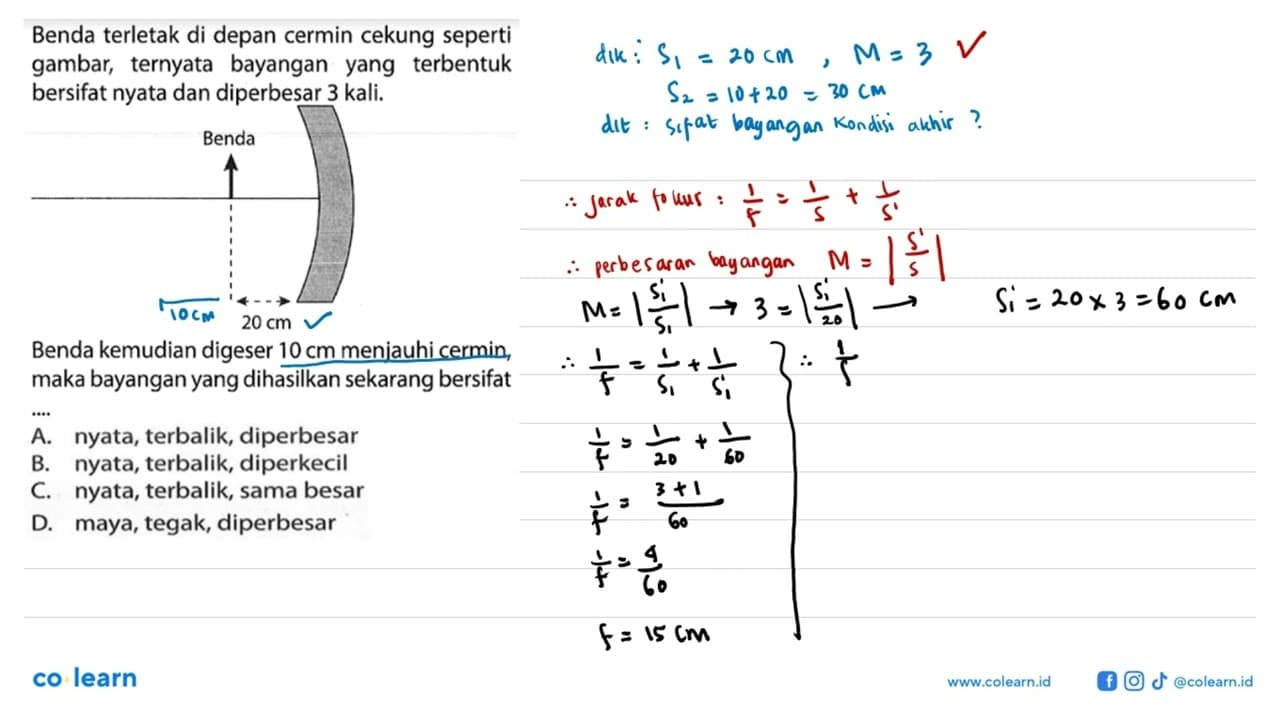 Benda terletak di depan cermin cekung seperti
gambar, ternyata bayangan yang terbentuk
bersifat nyata dan diperbesar 3 kali.
Benda
10 cm
20 cm
Benda kemudian digeser 10 cm menjauhi cermin,
maka bayangan yang dihasilkan sekarang bersifat
....
A. nyata, terbalik, diperbesar
B. nyata, terbalik, diperkecil
C. nyata, terbalik, sama besar
D. maya, tegak, diperbesar
dik : S₁ = 20 cm , M = 3 ✓
S₂ = 10 + 20 = 30 cm
dit : sifat bayangan kondisi akhir ?
∴ jarak fokus : 1/f = 1/s + 1/s'
∴ perbesaran bayangan M = |s'/s|
M = |s₁'/s₁| → 3 = |s₁'/20| → s₁' = 20 × 3 = 60 cm
∴ 1/f = 1/s₁ + 1/s₁' ∴ 1/f
1/f = 1/20 + 1/60
1/f = 3+1/60
1/f = 4/60
f = 15 cm
co learn
www.colearn.id
@colearn.id